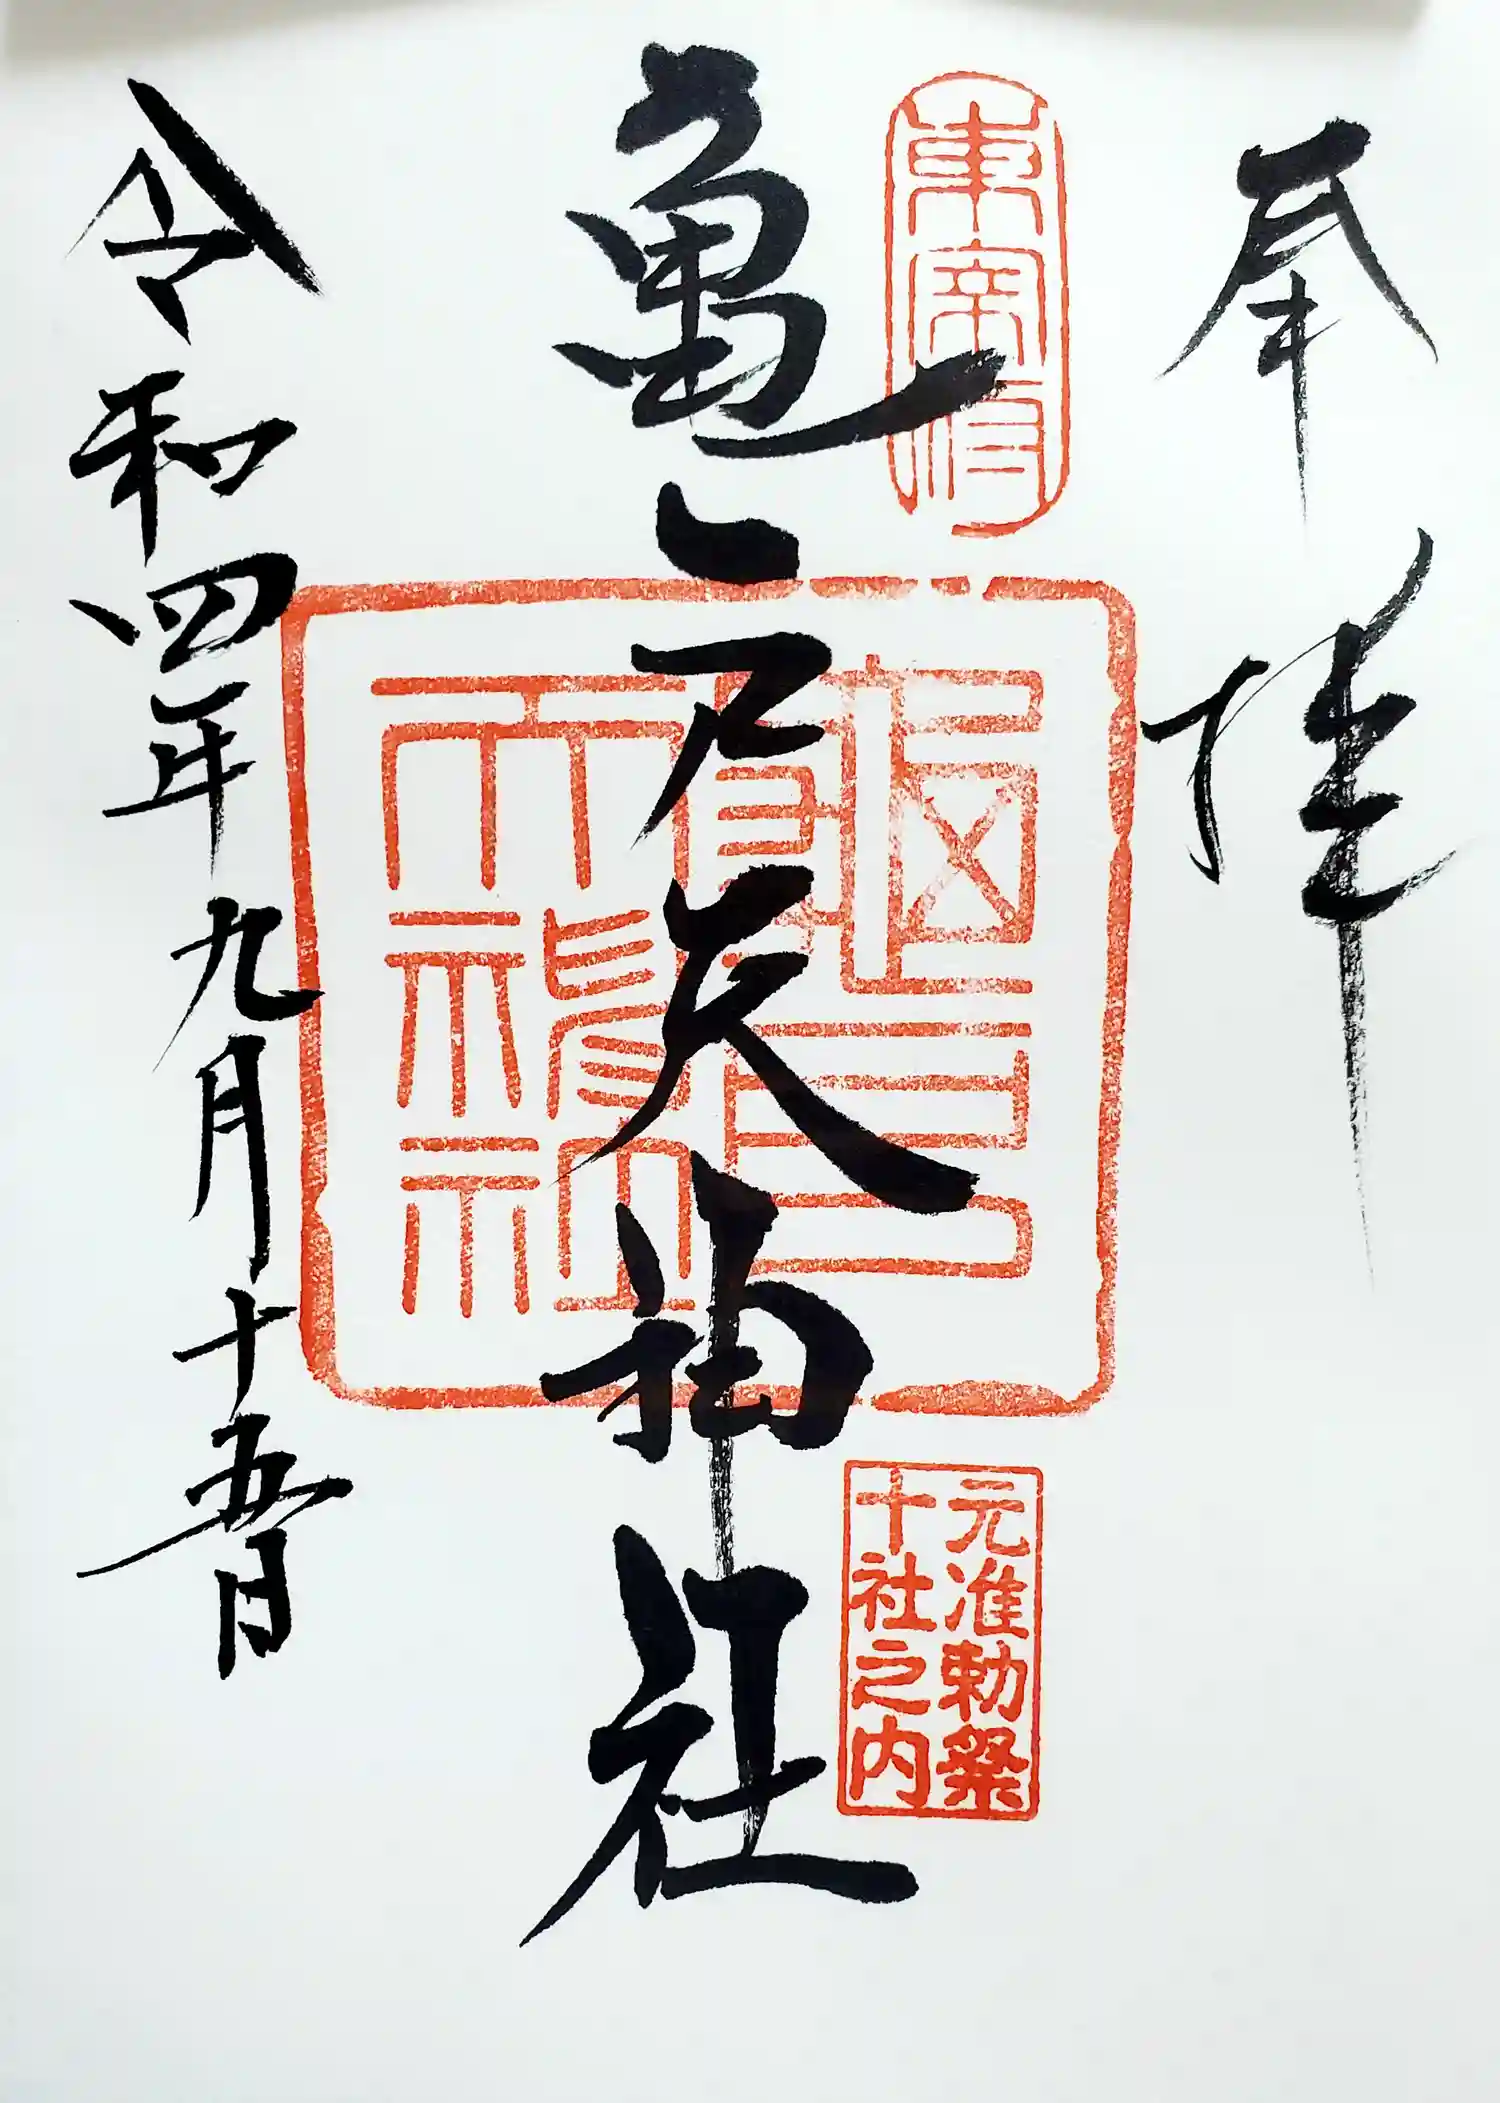 奉拝
東宰府
亀戸天神社
元准勅祭
十社之内
令和四年九月十五日